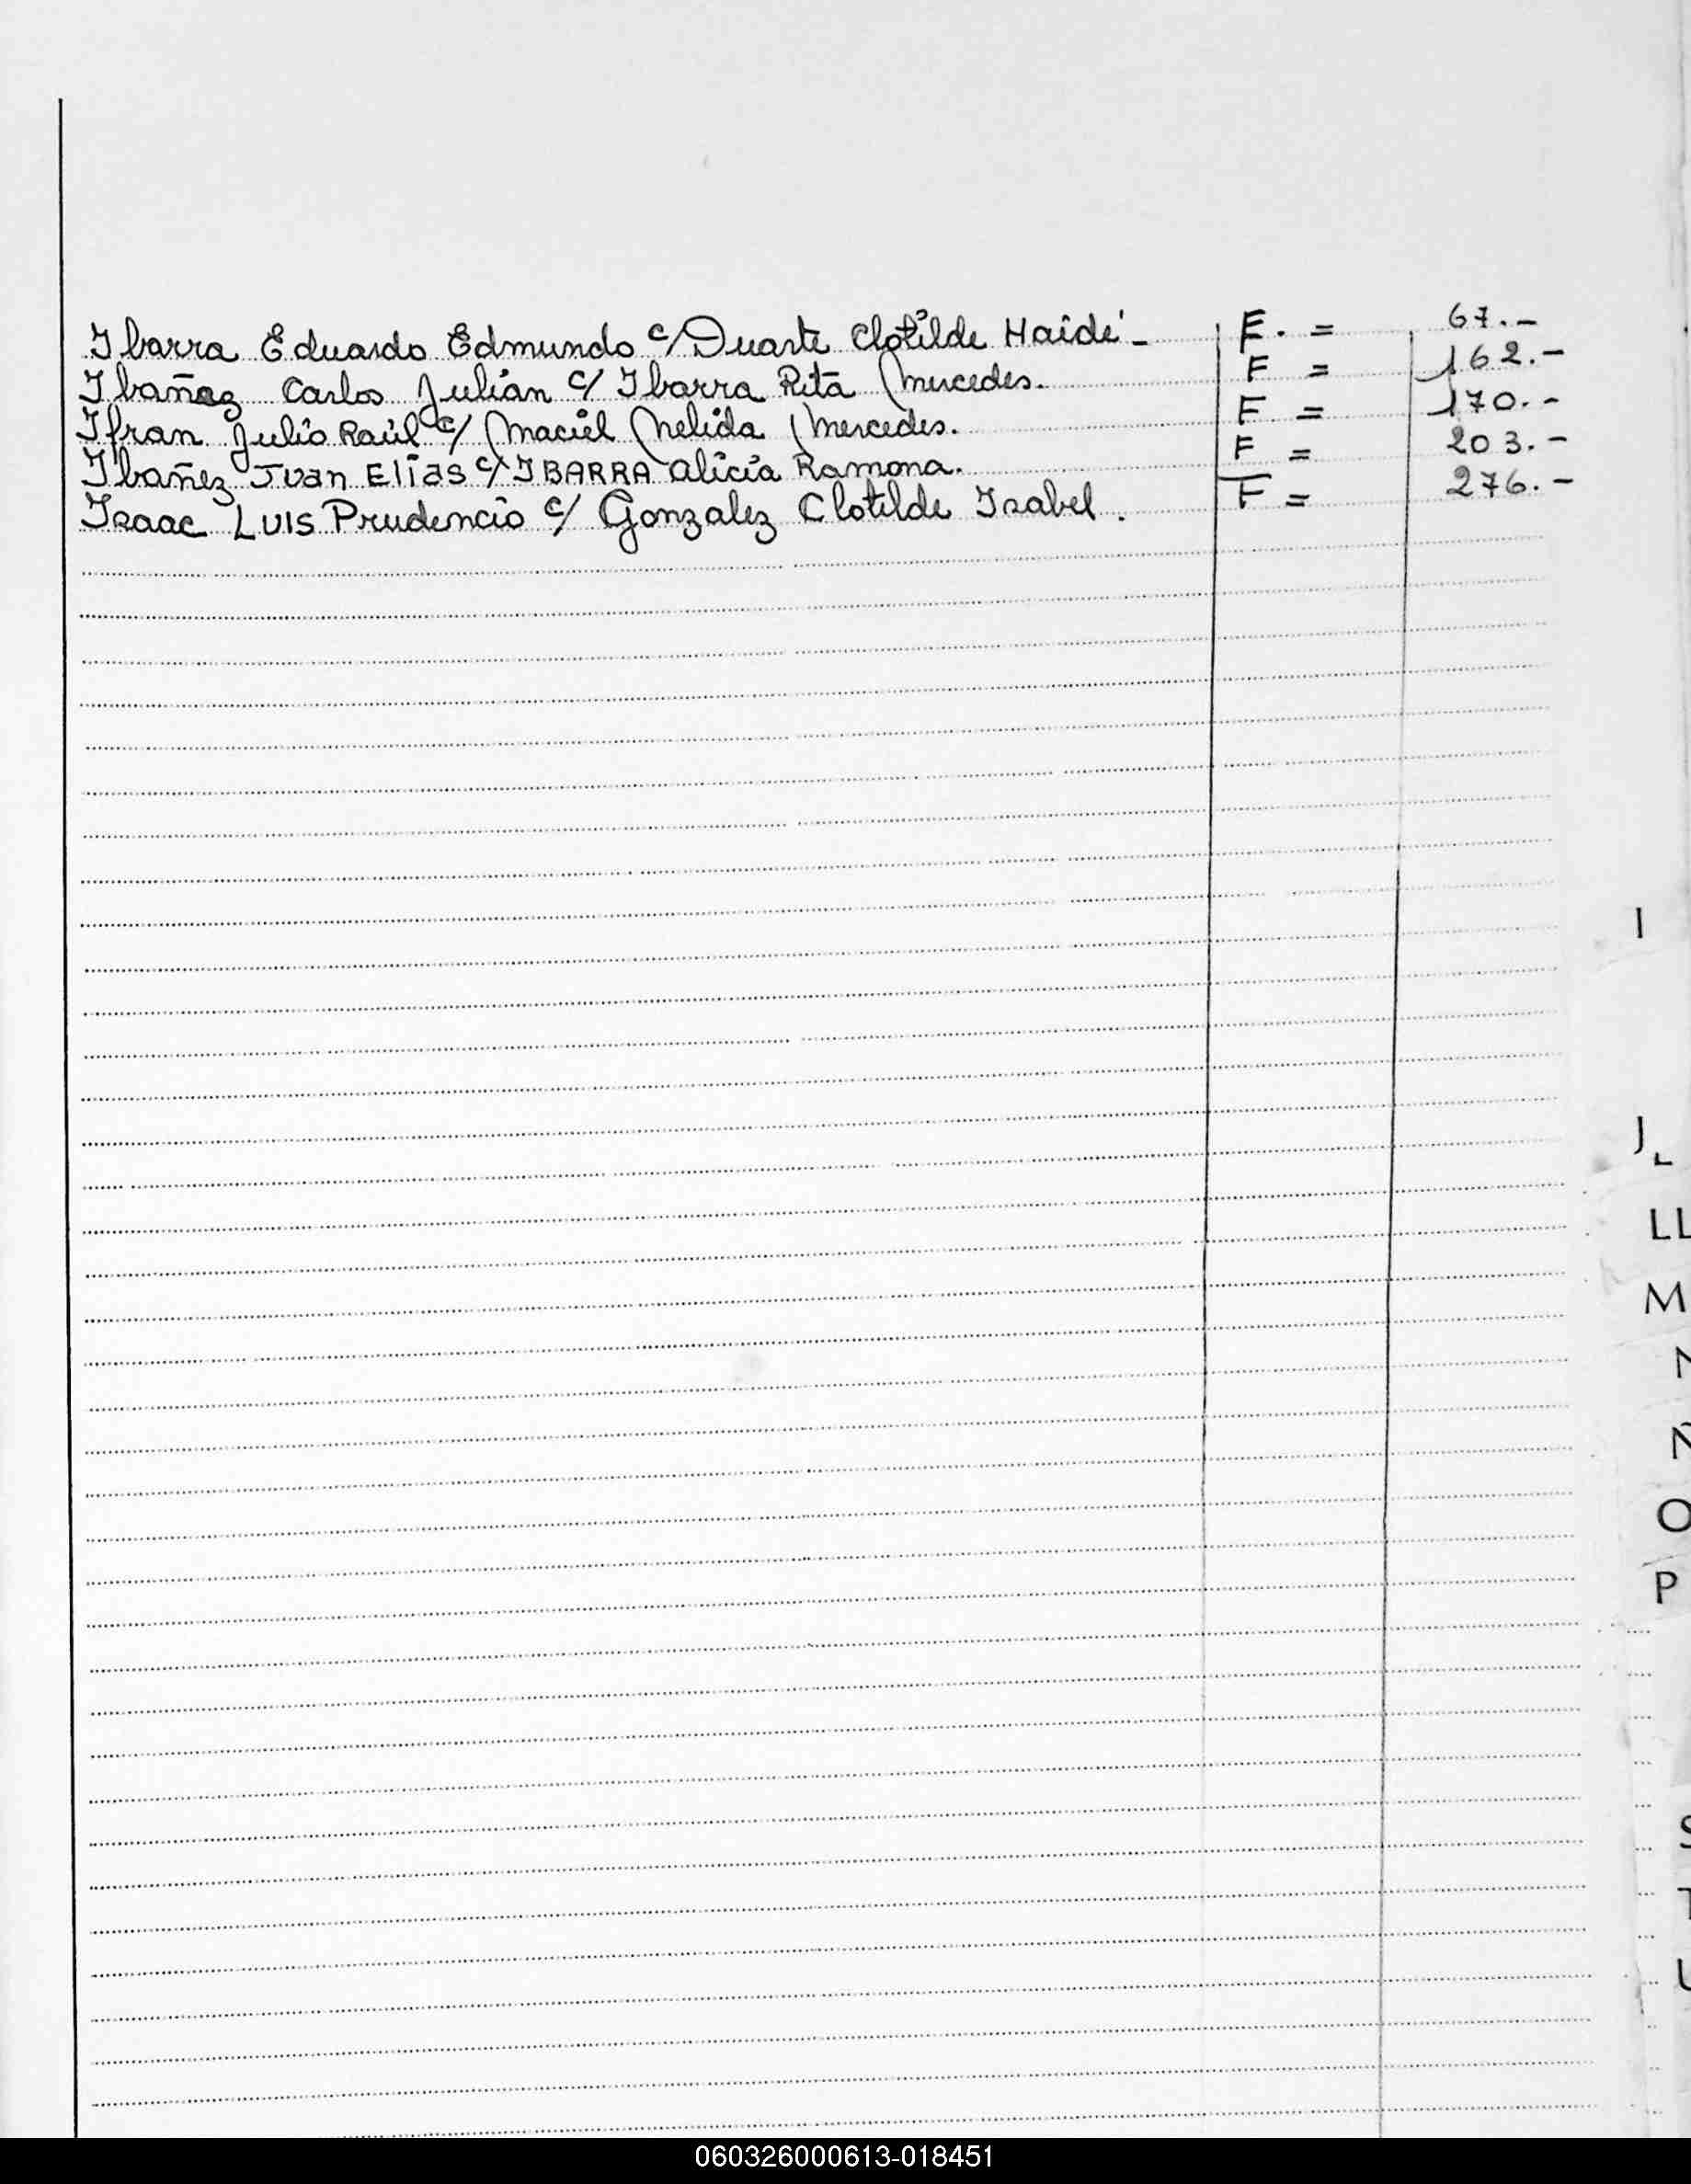 Ibarra Eduardo Edmundo c/ Duarte Clotilde Haidé - F. = 67.-
Ibañez Carlos Julián c/ Ibarra Rita Mercedes. F = 162.-
Ifran Julio Raúl c/ Maciel Nelida Mercedes. F = 170.-
Ibañez Juan Elías c/ IBARRA Alicia Ramona. F = 203.-
Isaac Luis Prudencio c/ Gonzalez Clotilde Isabel. F = 276.-
I
J
L
LL
M
N
Ñ
O
P
S
T
U
060326000613-018451